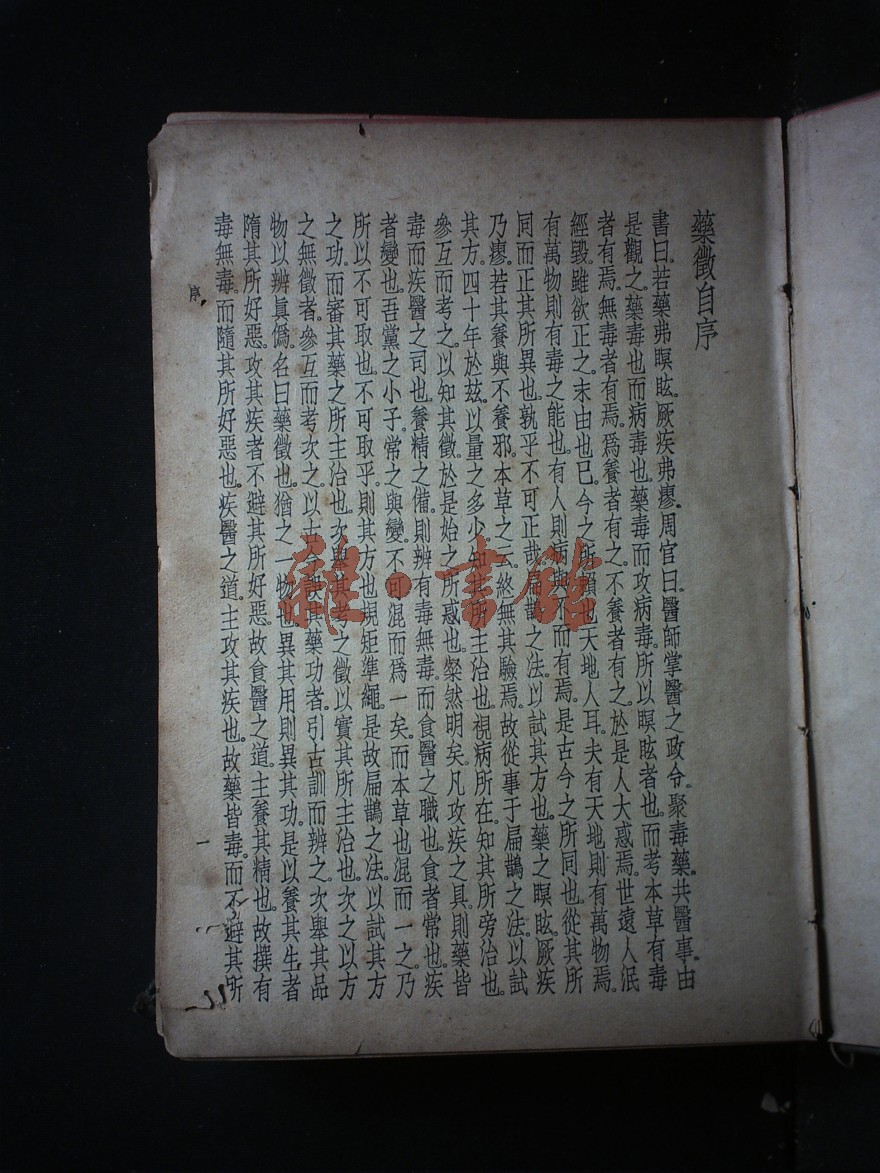 藥徵自序
書曰。若藥弗瞑眩。厥疾弗瘳。周官曰。醫師掌醫之政令。聚毒藥。共醫事。由
是觀之。藥毒也。而病毒也。藥毒而攻病毒。所以瞑眩者也。而考本草。有毒
者有焉。無毒者有焉。爲養者有之。不養者有之。於是人大惑焉。世遠人泯
經毀。雖欲正之。末由也已。今之所賴也。天地人耳。夫有天地則有萬物焉。
有萬物則有毒之能也。有人則病與正而有焉。是古今之所同也。從其所
同而正其所異也。孰乎不可正哉。扁鵲之法。以試其方也。藥之瞑眩。厥疾
乃瘳。若其養與不養邪。本草之云。終無其驗焉。故從事于扁鵲之法。以試
其方。四十年於茲。以量之多少。知其所主治也。視病所在。知其所旁治也。
參互而考之。以知其徵。於是始之所惑也。粲然明矣。凡攻疾之具。則藥皆
毒。而疾醫之司也。養精之備。則辨有毒無毒。而食醫之職也。食者常也。疾
者變也。吾黨之小子。常之與變。不可混而爲一矣。而本草也混而一之。乃
所以不可取也。不可取乎。則其方也規矩準繩。是故扁鵲之法。以試其方
之功。而審其藥之所主治也。次舉其考之徵。以實其所主治也。次之以方
之無徵者。參互而考次之。以古今誤其藥功者。引古訓而辨之。次舉其品
物以辨眞僞。名曰藥徵也。猶之一物也。異其用則異其功。是以養其生者
隋其所好惡。攻其疾者不避其所好惡。故食醫之道。主養其精也。故撰有
毒無毒。而隨其所好惡也。疾醫之道。主攻其疾也。故藥皆毒。而不避其所
序
一
雜·書館